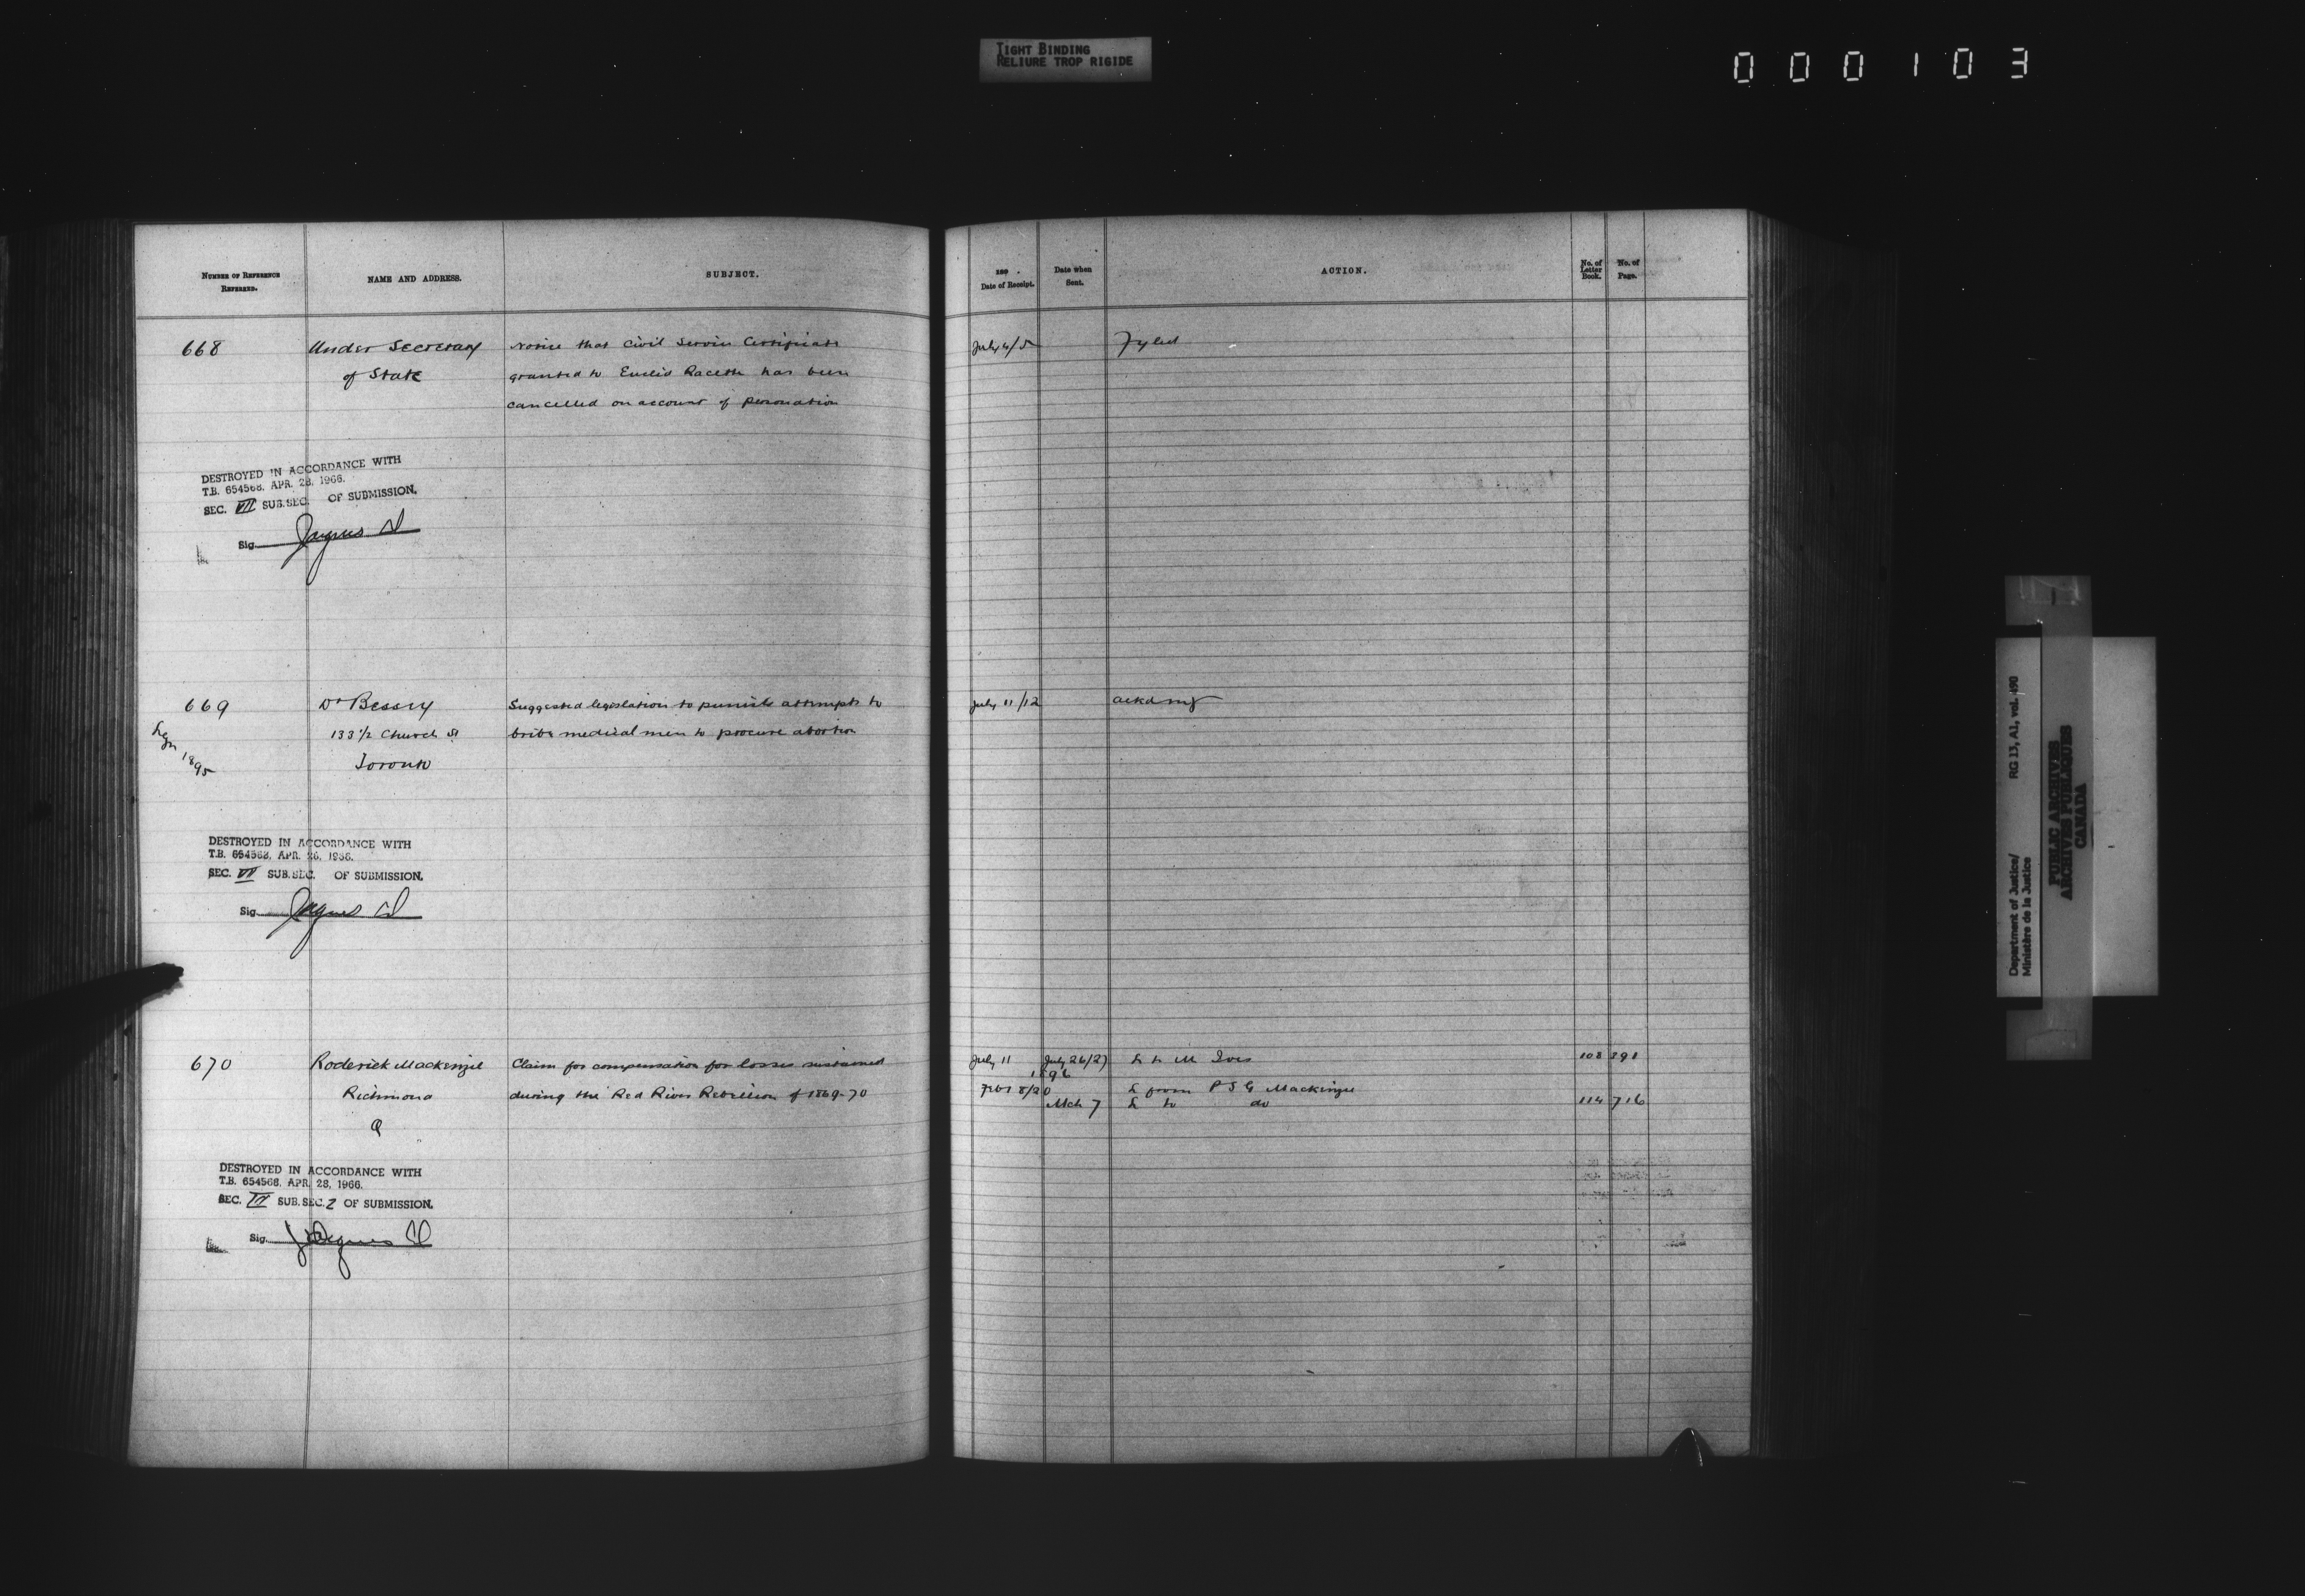 TIGHT BINDING
RELIURE TROP RIGIDE
000103
NUMBER OF REFERENCE
REFERRED.
NAME AND ADDRESS.
SUBJECT.
189 .
Date of Receipt.
Date when
Sent.
ACTION.
No. of
Letter
Book.
No. of
Page.
668
Under Secretary
of State
Notice that Civil Service Certificate
granted to Euclid Racette has been
cancelled on account of personation
July 4/5
Fyled
DESTROYED IN ACCORDANCE WITH
T.B. 654568, APR. 28, 1966.
SEC. VII SUB.SEC. OF SUBMISSION.
Sig.
669
Legn 1895
Dr Bessey
133 1/2 Church St
Toronto
Suggested legislation to punish attempts to
bribe medical men to procure abortion
July 11/12
ackdng
DESTROYED IN ACCORDANCE WITH
T.B. 654568, APR. 26, 1966.
SEC. VII SUB.SEC. OF SUBMISSION.
Sig.
670
Roderick Mackenzie
Richmond
Q
Claim for compensation for losses sustained
during the Red River Rebellion of 1869-70
July 11 July 26/27 L to M Ives 108 391
1896
Feb 8/20 L from P S G Mackenzie
Mch 7 L to do 114 716
DESTROYED IN ACCORDANCE WITH
T.B. 654568, APR. 28, 1966.
SEC. VI SUB.SEC. 2 OF SUBMISSION.
Sig.
Department of Justice/
Ministère de la Justice
RG 13, A1, vol. 490
PUBLIC ARCHIVES
ARCHIVES PUBLIQUES
CANADA